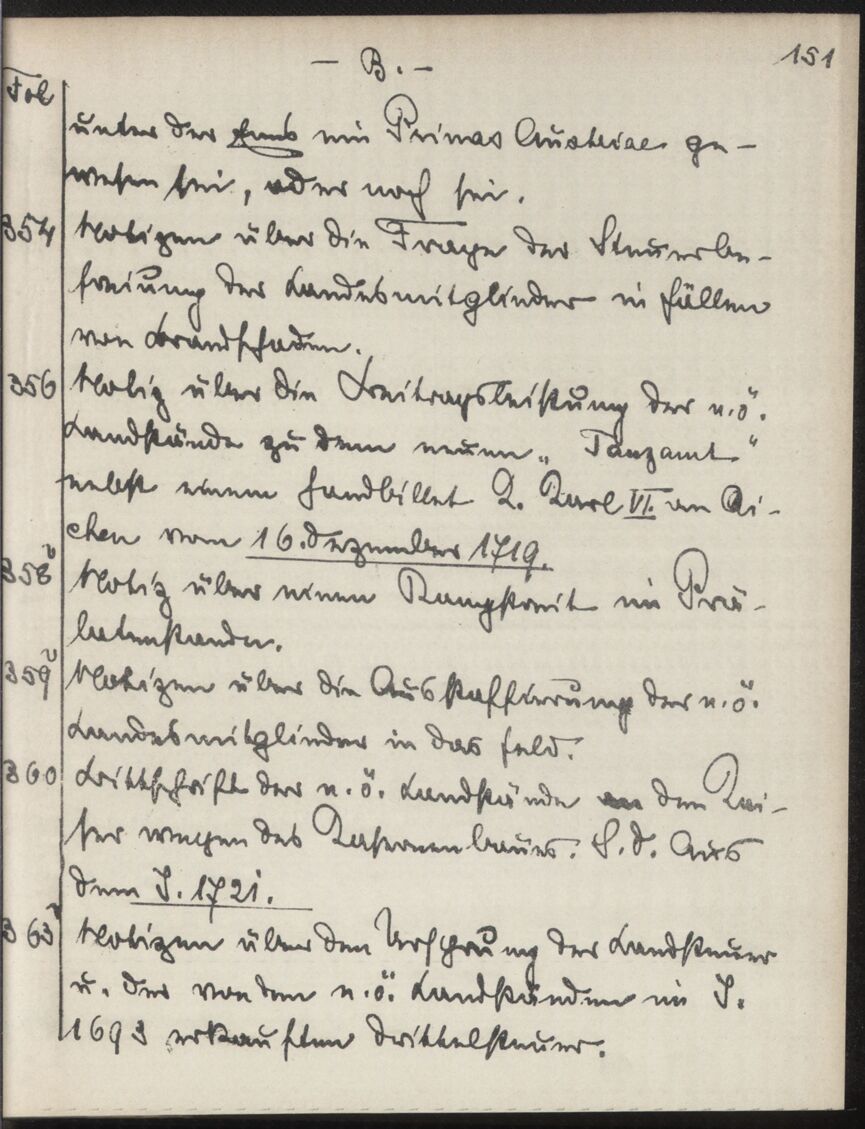 151
— B. —
Fol
unter der Enns ein Primas Austriae ge-
wesen sei, oder noch sei.
354 Notizen über die Frage der Steuerbe-
freiung der Landesmitglieder in Fällen
von Brandschaden.
356 Notiz über die Beitragsleistung der n.ö.
Landstände zu dem neuen „Tanzamt“
nebst einem Handbillet K. Karl VI. an Ai-
chen vom 16. Dezember 1719.
358v Notiz über einen Rangstreit im Prä-
latenstande.
359v Notizen über die Ausstaffierung der n.ö.
Landesmitglieder in das Feld.
360 Bittschrift der n.ö. Landstände an den Kai-
ser wegen des Kasernenbaues. S. d. Aus
dem J. 1721.
363v Notizen über den Ursprung der Landsteuer
u. der von den n.ö. Landständen im J.
1693 erkauften Drittelsteuer.